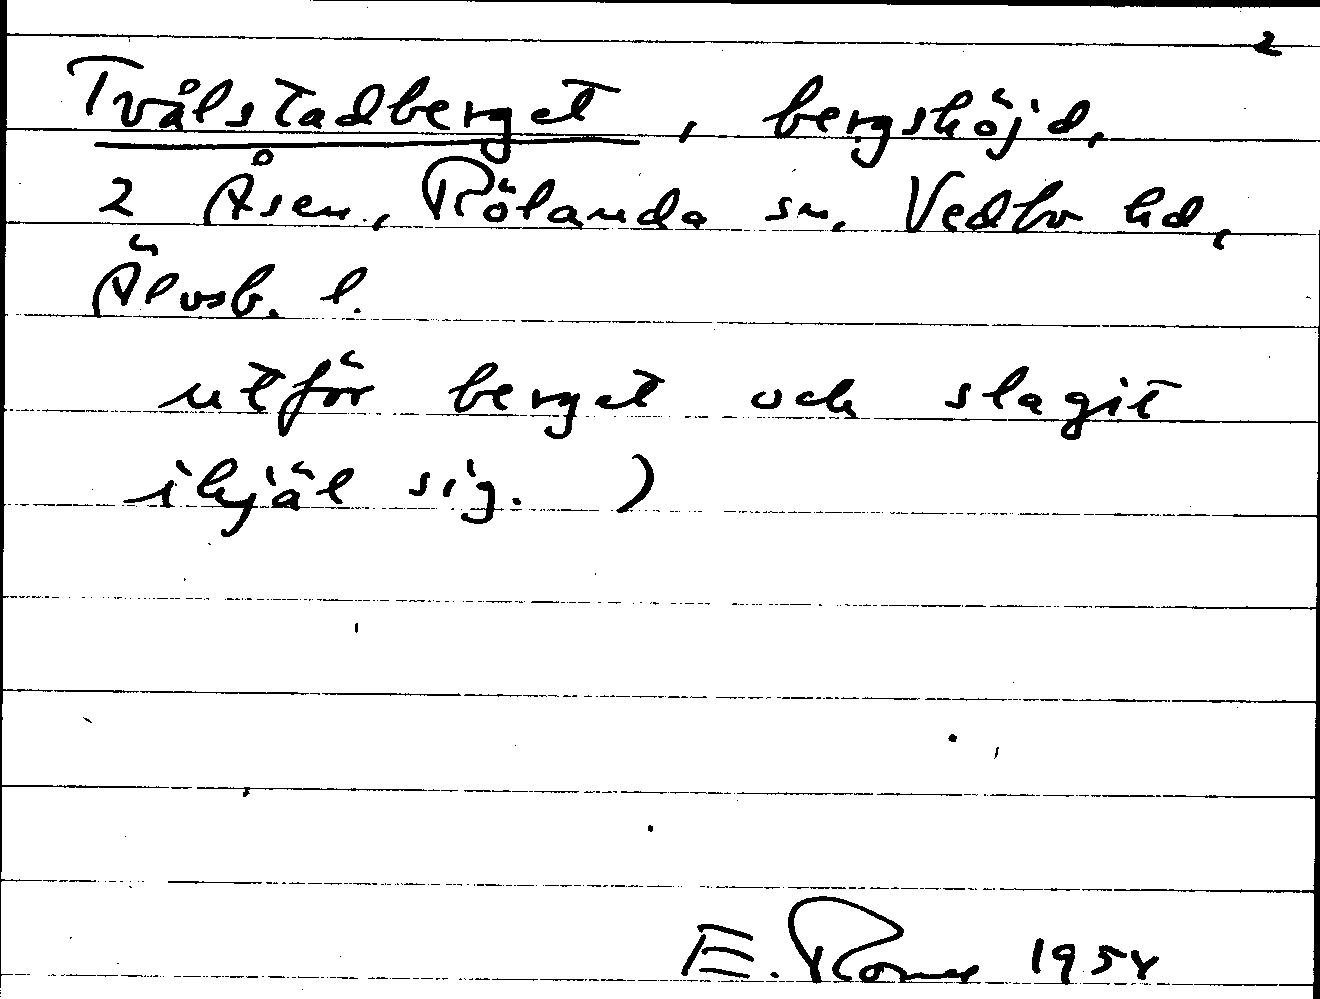 2
Tvålstadberget, bergshöjd,
2 Åsen, Rölanda sn, Vedbo hd,
Älvsb. l.
utför berget och slagit
ihjäl sig. )
E. 1954